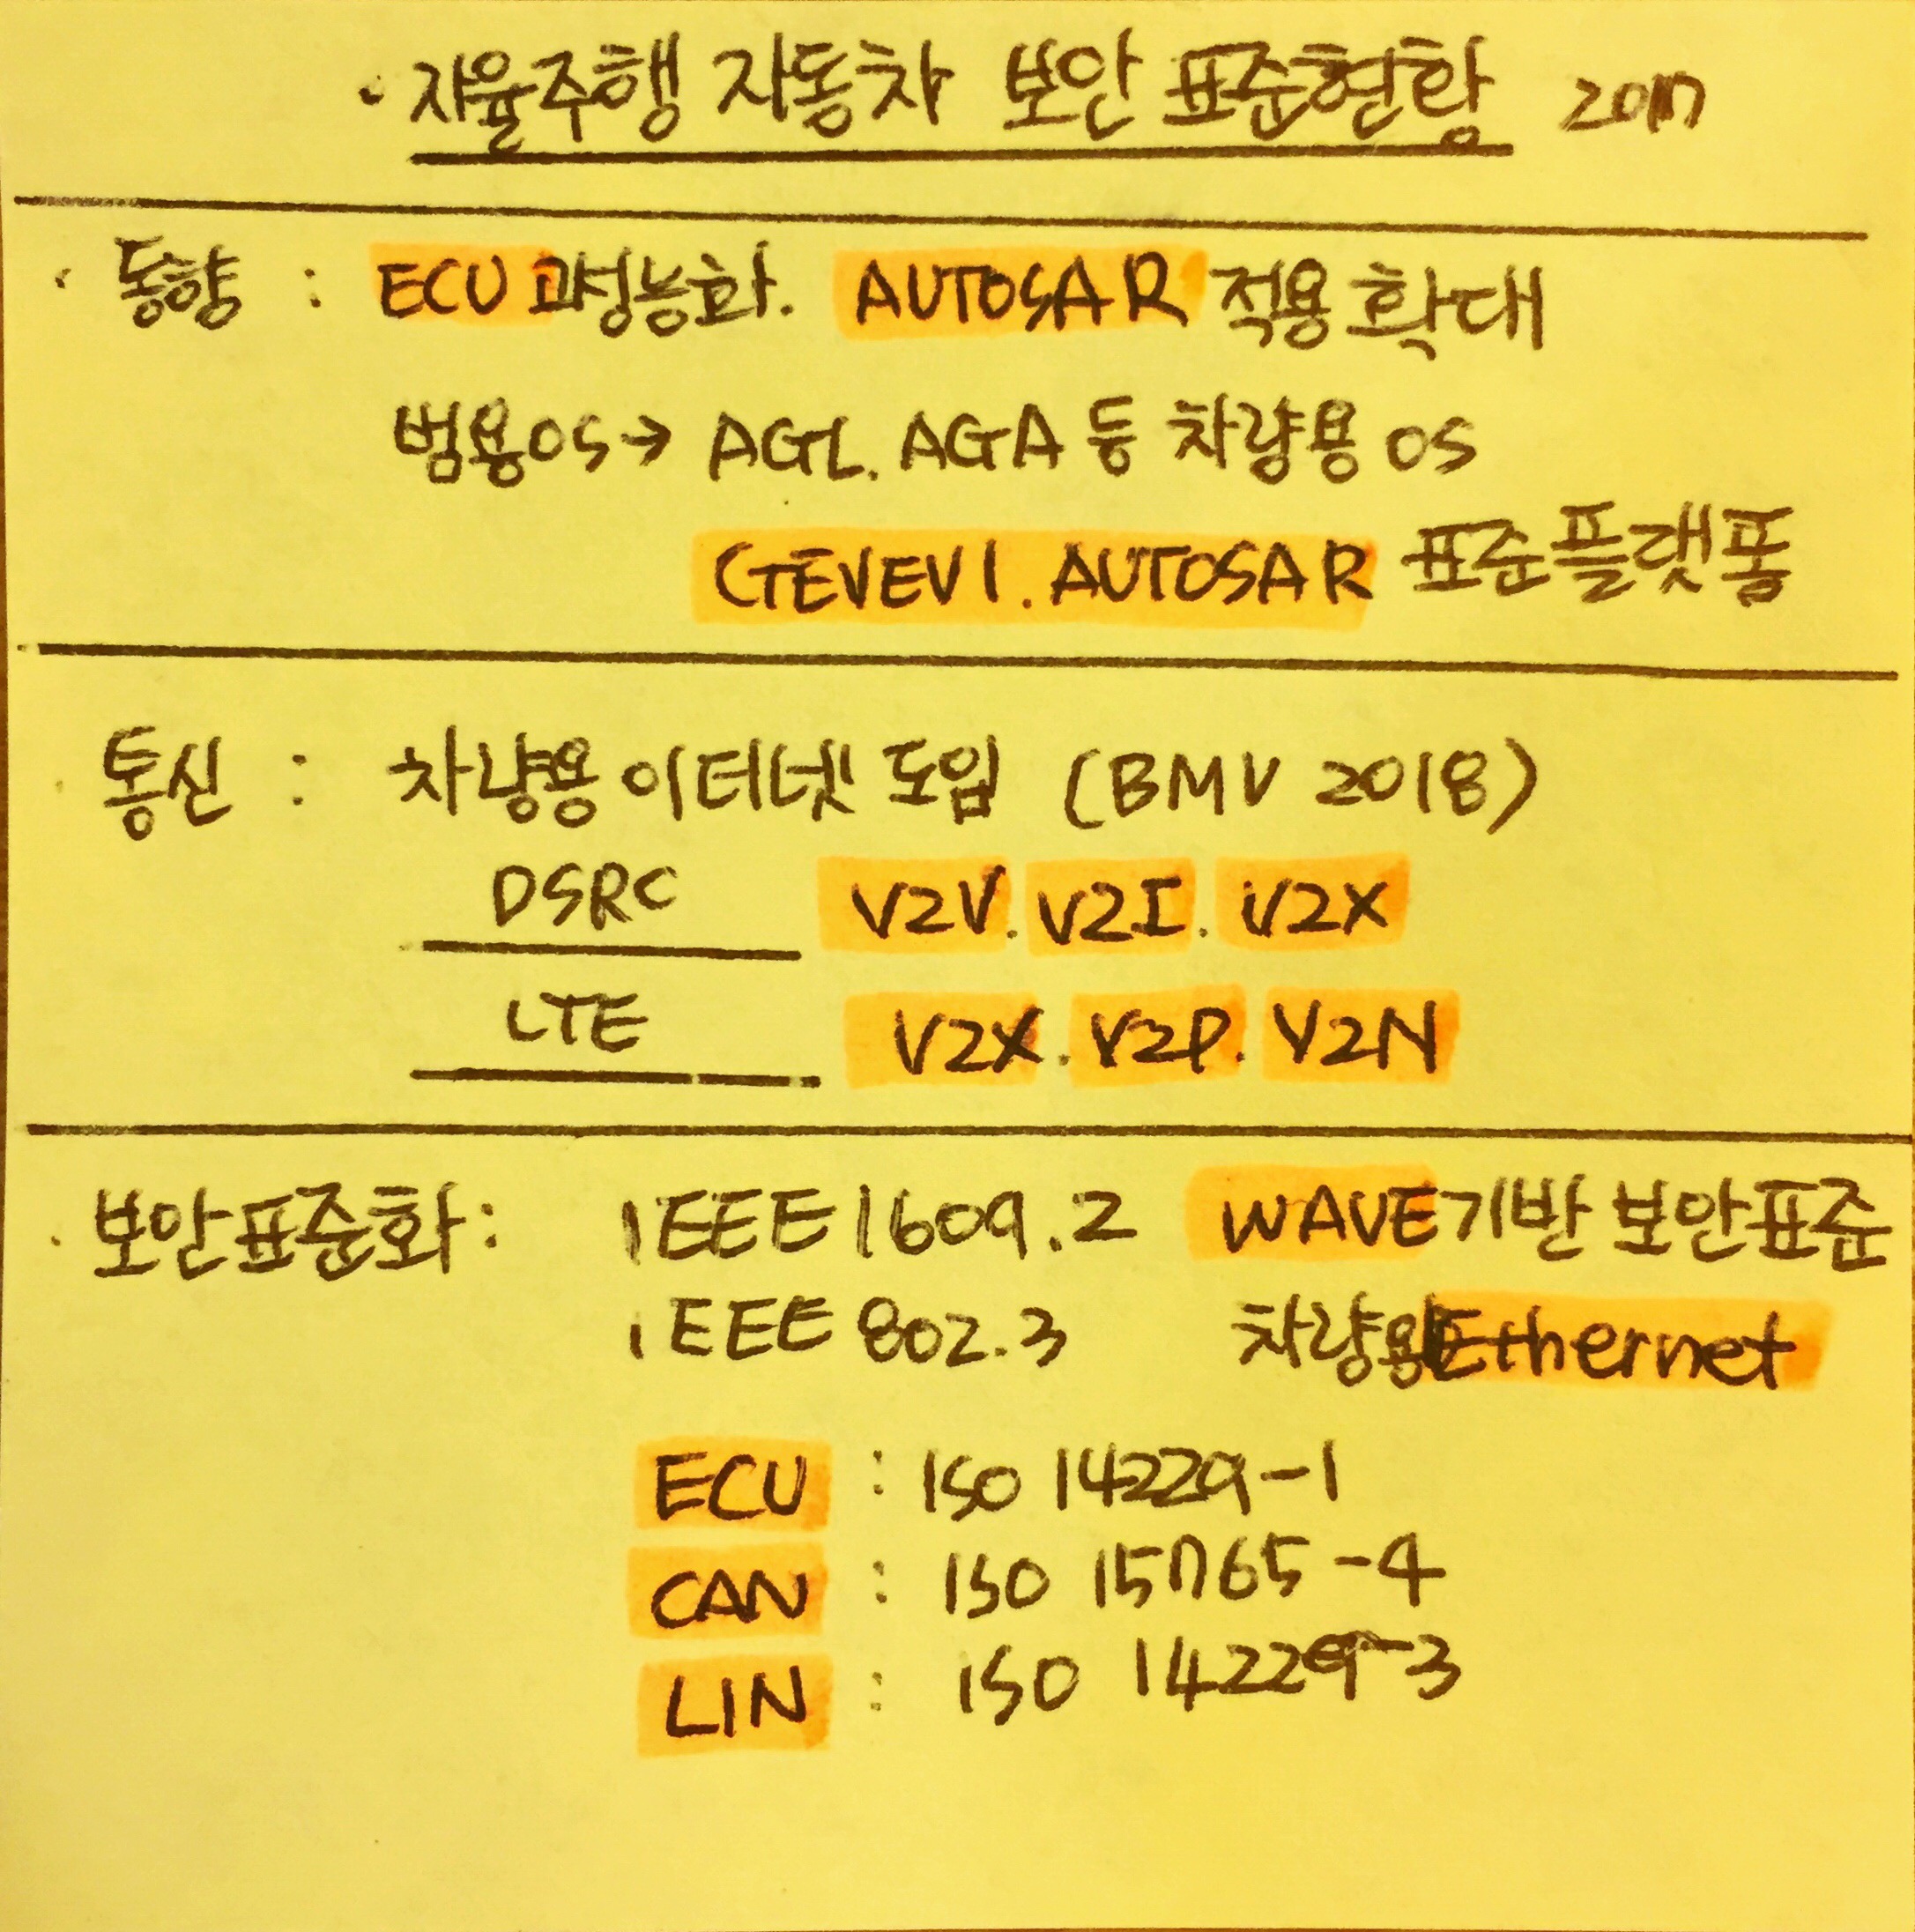 · 자율주행 자동차 보안 표준현황 2017
· 동향 : ECU 고성능화. AUTOSAR 적용 확대
범용OS → AGL. AGA 등 차량용 OS
GEVEVI. AUTOSAR 표준플랫폼
· 통신 : 차량용 이터넷 도입 (BMV 2018)
DSRC V2V. V2I. V2X
LTE V2X. V2P. V2N
· 보안표준화 : IEEE 1609.2 WAVE기반 보안표준
IEEE 802.3 차량용 Ethernet
ECU : ISO 14229-1
CAN : ISO 15765-4
LIN : ISO 14229-3